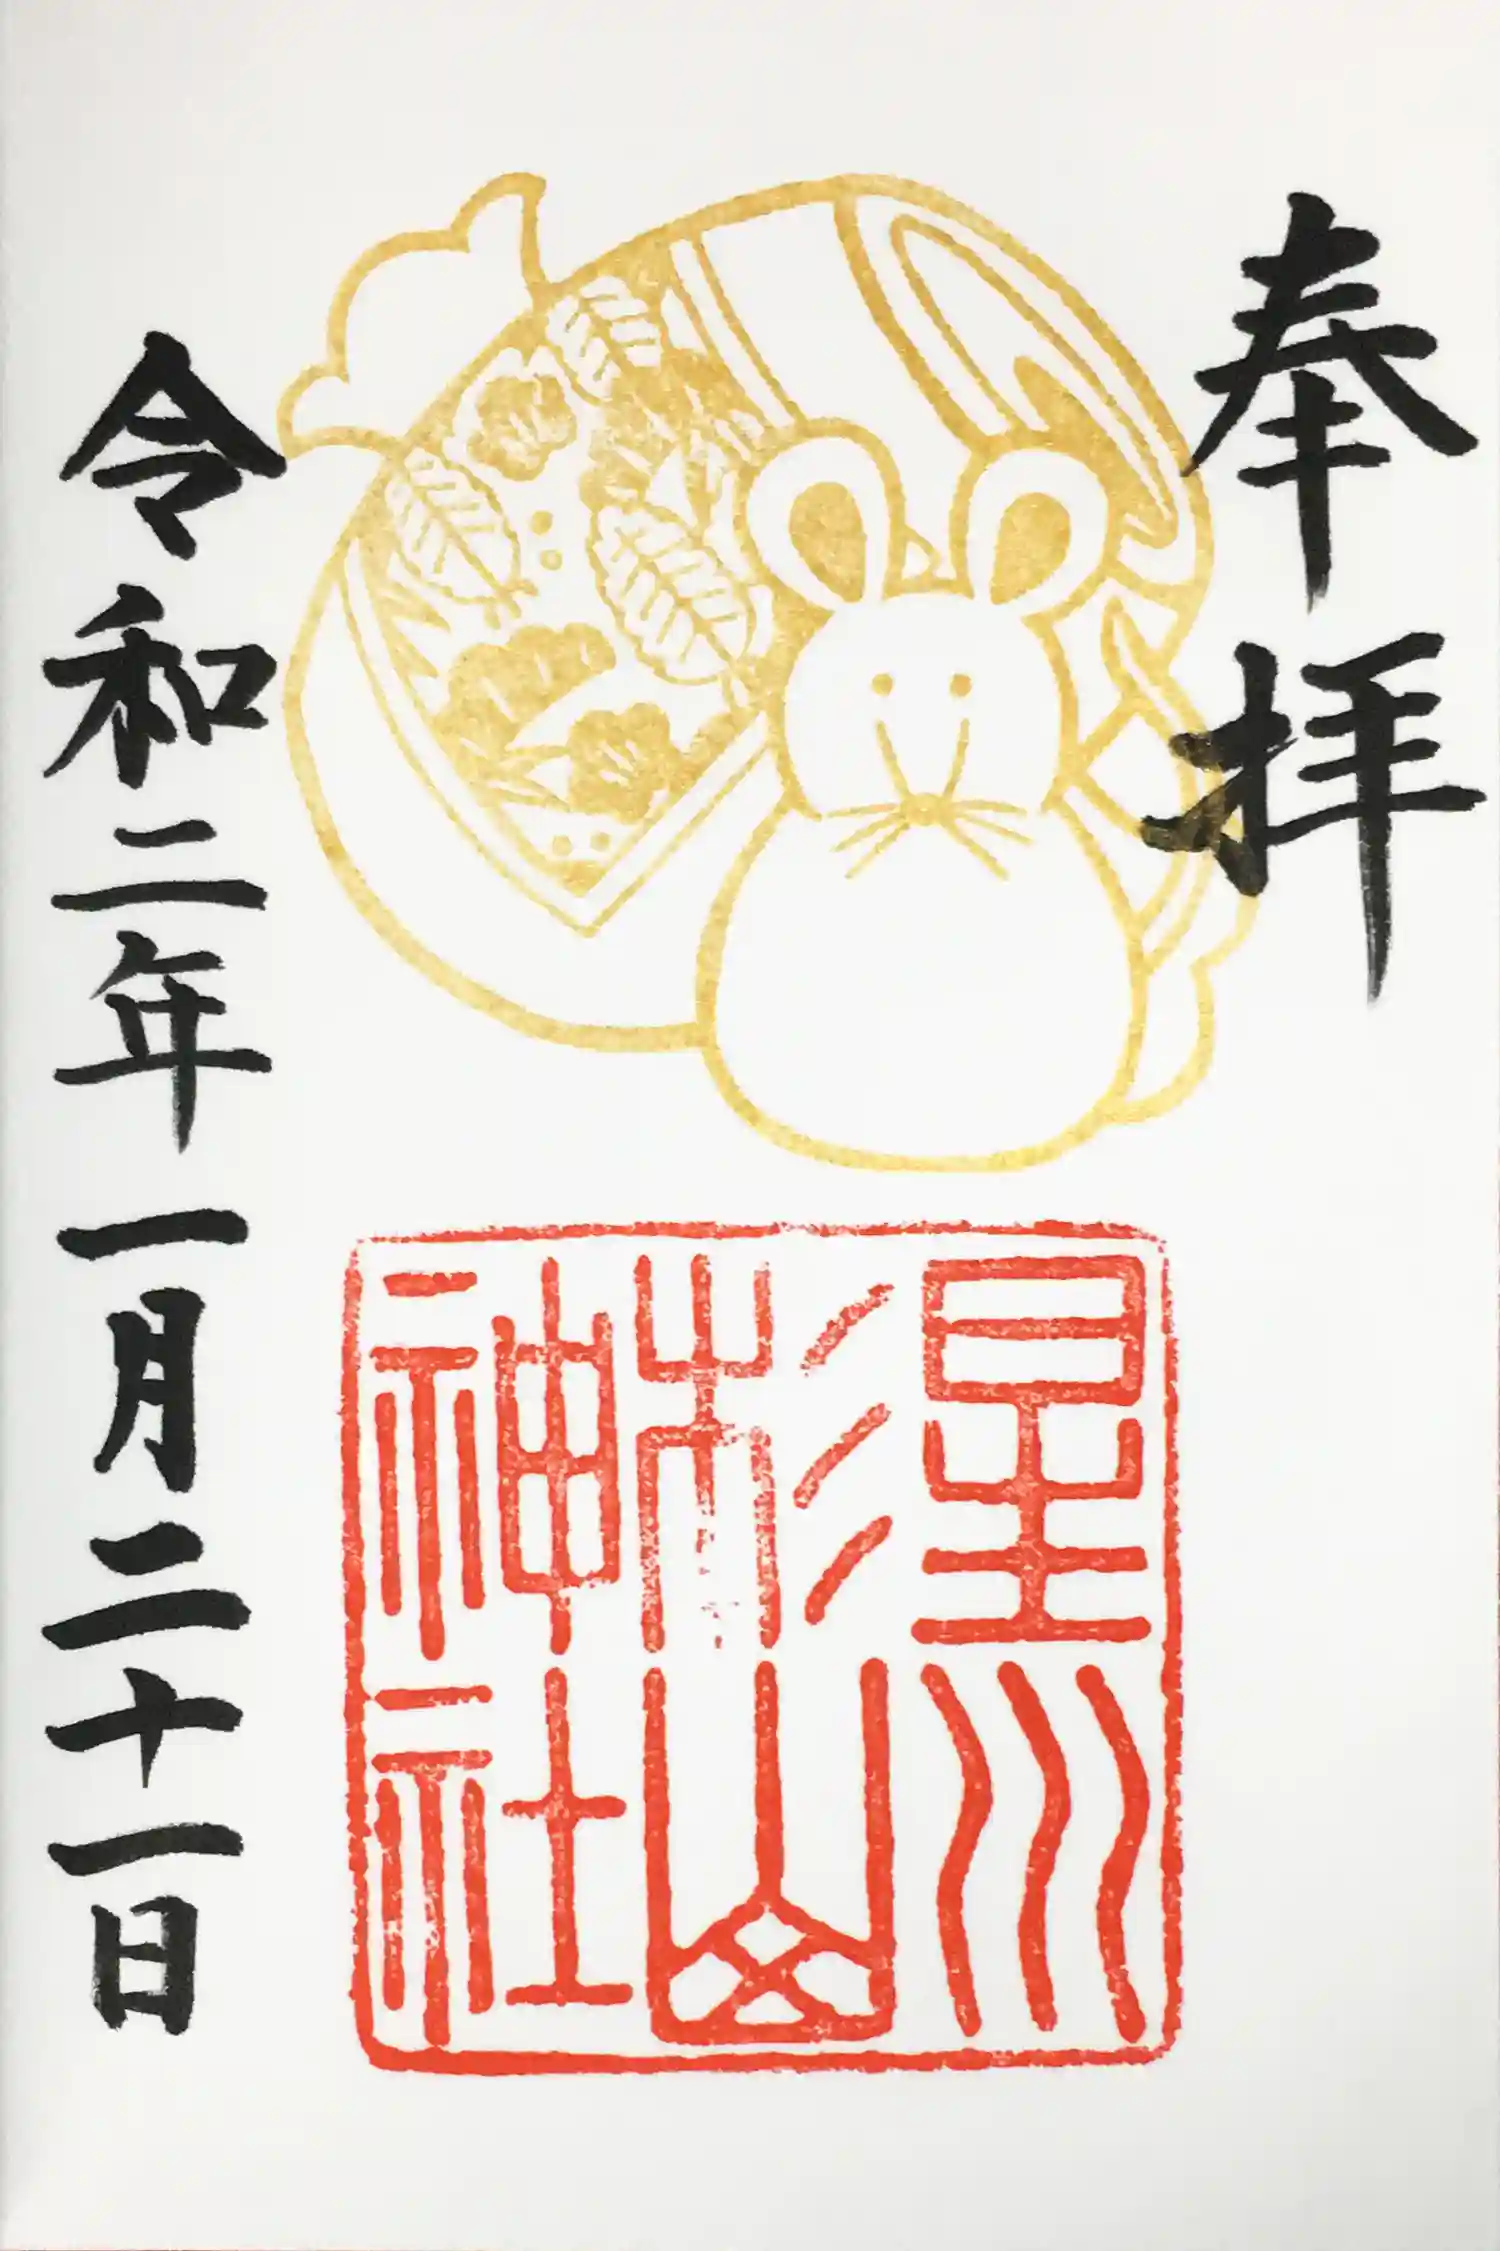 奉拝
星川
杉山
神社
令和二年一月二十一日